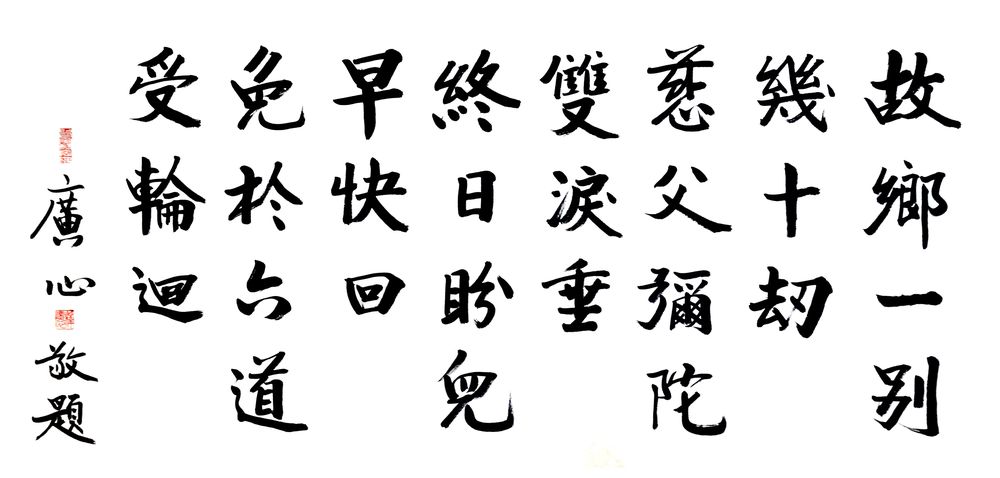 故鄉一别
幾十刼
慈父彌陀
雙淚垂
終日盼兒
早快回
免於六道
受輪迴
廣心敬題